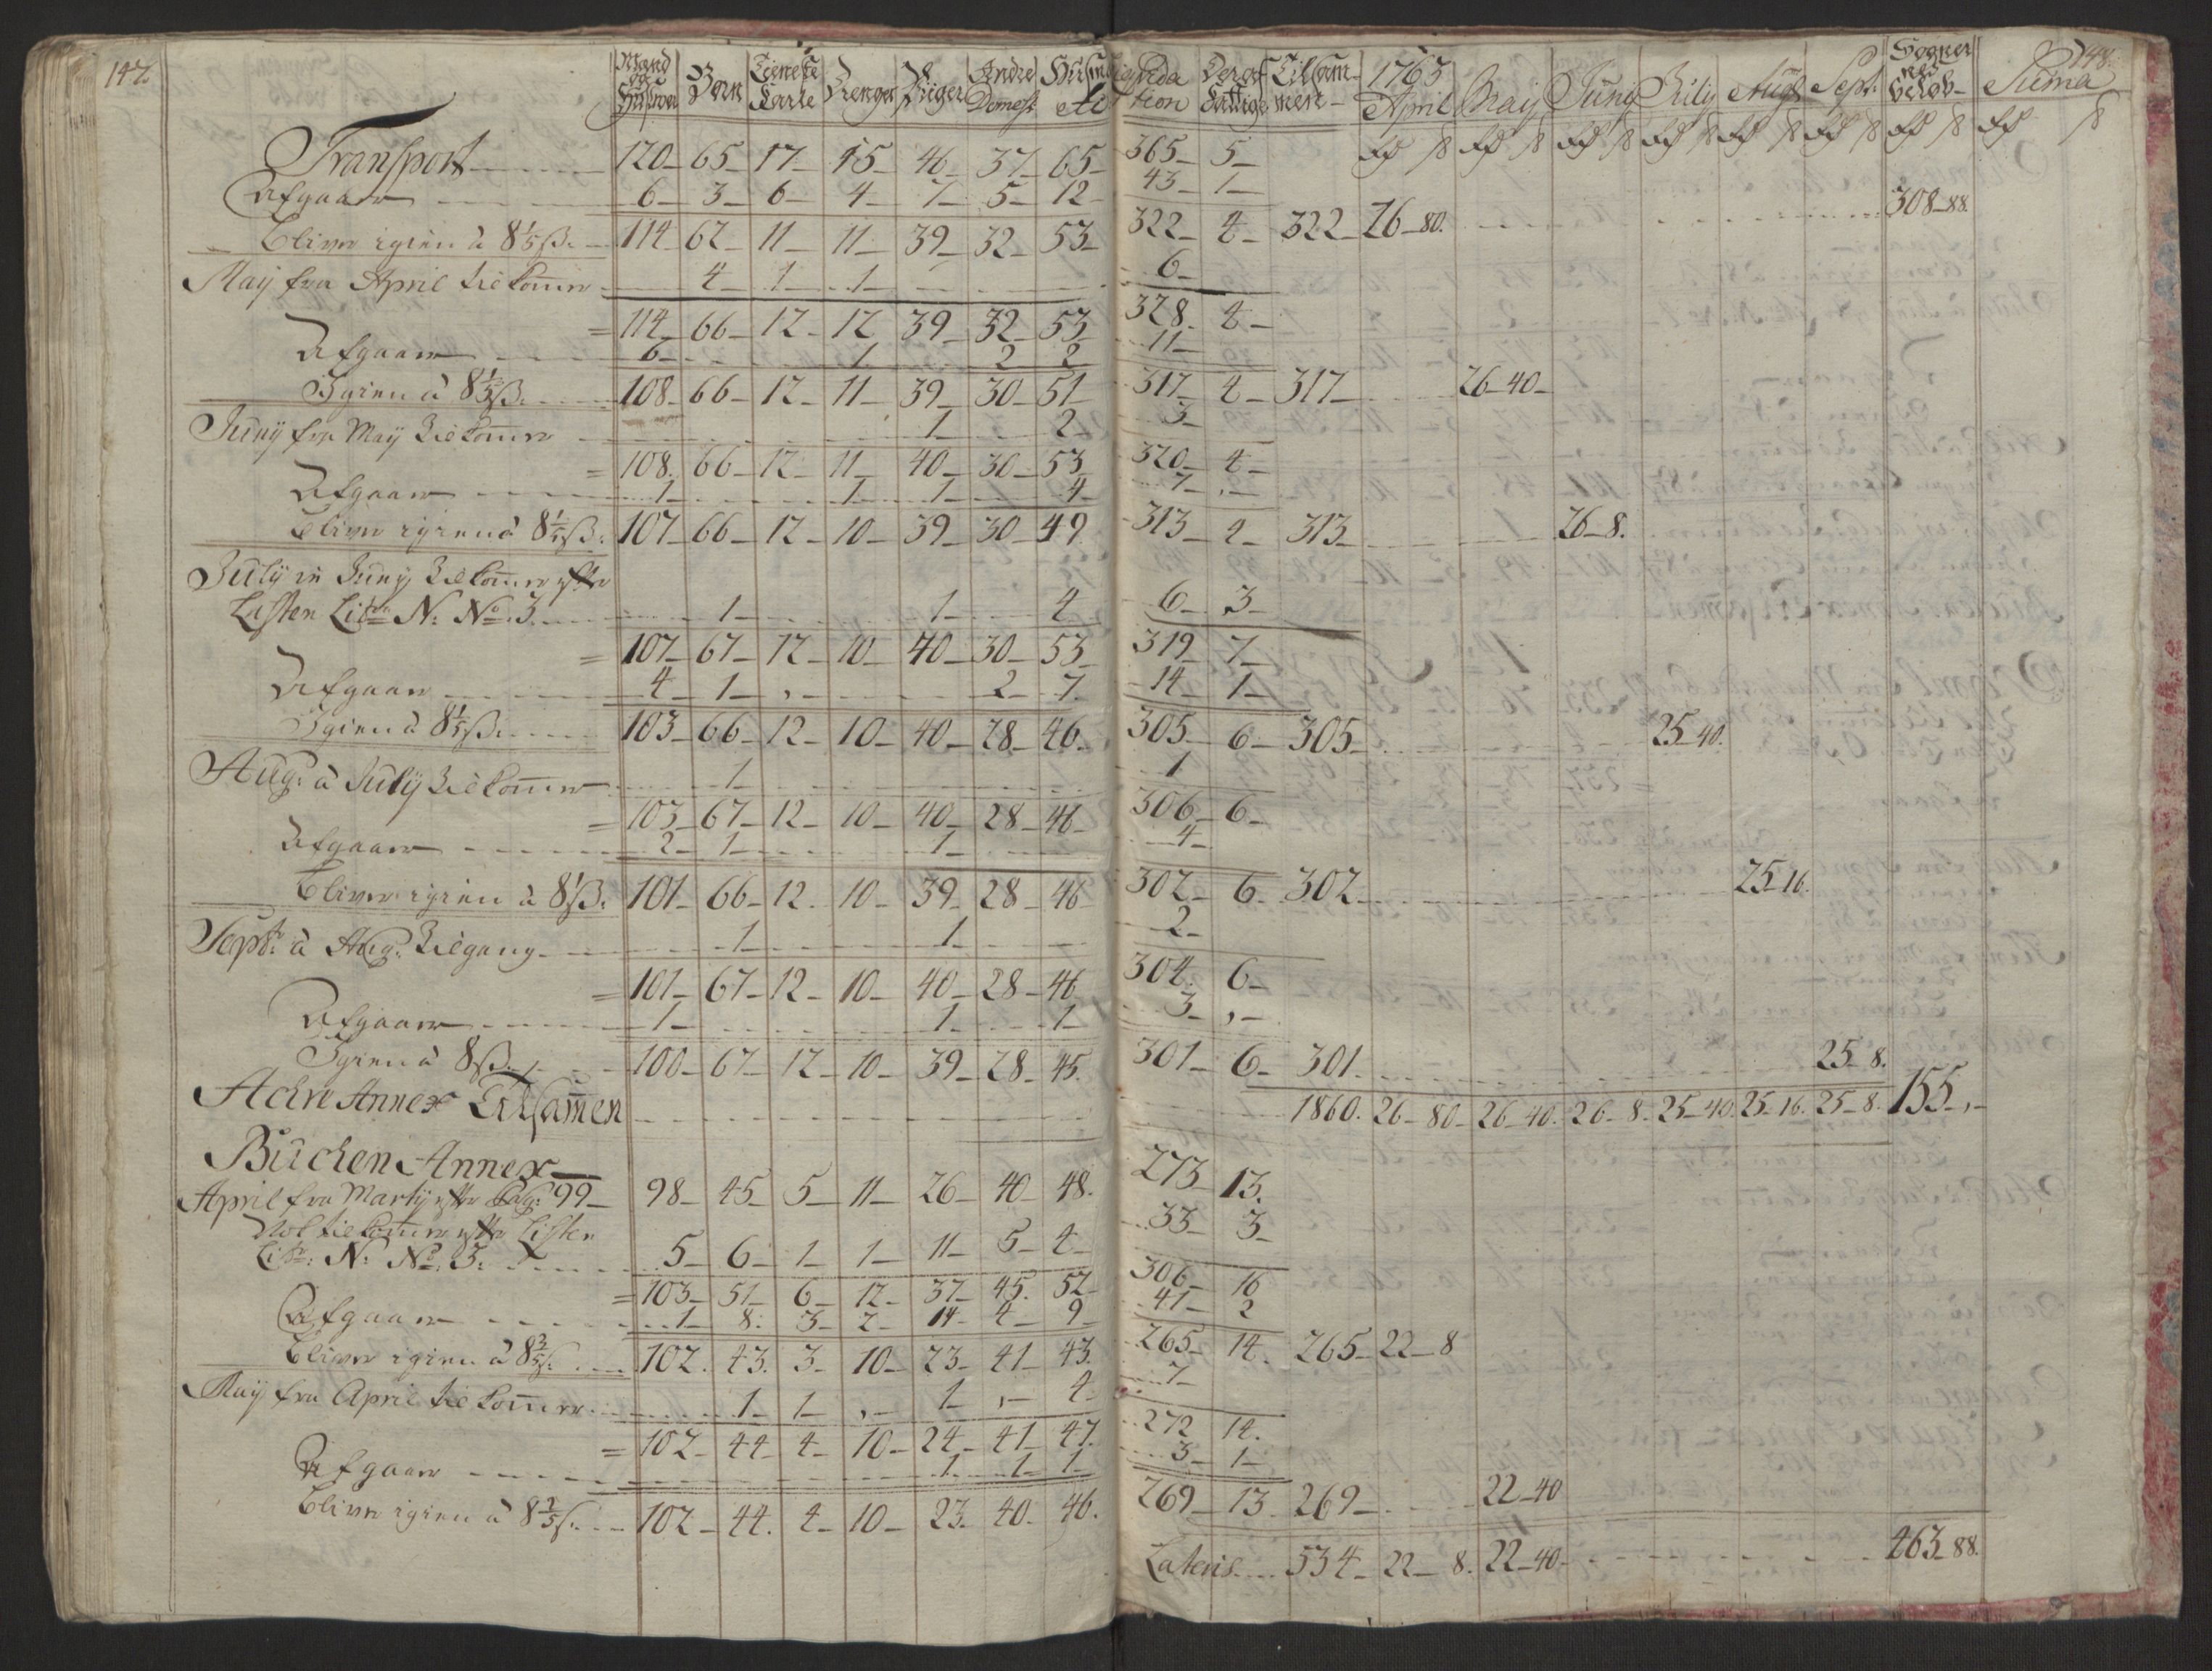 147. 148.
Mand og Hustroer | Børn | Tieneste Karle | Drenger | Piiger | Andre Domest. | Huusmænd | Qvidation | Deraf Fattige | Tilsammen | 1763 April | Maij | Junij | July | Augt | Sept. | Sogner ned Beløb | Suma
Transport 120 65 17 15 46 37 65 365 5
Afgaaer 6 3 6 4 7 5 12 43 1
bliver igien à 8 1/5 ß. 114 62 11 11 39 32 53 322 4 322 26 80. 308 88.
Maij fra April tilkommer 4 1 1 6
= 114 66 12 12 39 32 53 328. 4
Afgaaer 6 1 2 2 11
Igien à 8 1/5 ß. 108 66 12 11 39 30 51 317 4 317 26 40
Junij fra Maij Tilkommer 1 2 3
= 108. 66 12 11 40 30 53 320 4
Afgaaer 1 1 1 4 7
bliver igien à 8 1/5 ß. 107 66 12 10 39 30 49 313 4 313 26 8.
July in Junij Tilkommer efter
Listen Litr N: No. 3. 1 1 4 6 3
= 107 67 12 10 40 30 53 319 7
Afgaaer 4 1 2 7 14 1
Igien à 8 1/5 ß. 103 66 12 10 40 28 46. 305 6 305 25 40.
Aug: à July Tilkommer 1 1
= 103 67 12 10 40 28 46 306 6
Afgaaer 2 1 1 4
bliver igien à 8 ß. 101 66 12. 10 39 28 46 302 6 302 25 16.
Septr: à Aug: Tilgang 1 1 2
= 101 67 12 10 40 28 46 304. 6
Afgaaer 1 1 1 3
Igien à 8 ß. 100 67 12 10 39 28 45. 301 6 301. 25 8.
Annex Tilsammen 1860. 26 80 26 40. 26 8. 25 40. 25 16. 25 8. 155
Buchen Annex
April fra Martij efter Pag: 99 98 45 5 11 26 40 48. 273 13.
tilkommer efter Listen
Litr: N: No. 3. 5 6 1 1 11 5 4 33 3
= 103 51 6 12 37 45. 52 306 16
Afgaaer 1 8. 3 2 14 4 9 41 2
bliver igien à 8 2/5 ß. 102. 43. 3 10 23 41 43. 265 14. 265 22 8
Maij fra April tilkommer 1 1 1 4 7
= 102 44 4 10 24 41 47. 272 14.
Afgaaer 1 1 1 3 1
bliver igien à 8 2/5 ß. 102 44. 4 10 23. 40. 46. 269 13 269 22 40
Lateris 534 22 8. 22 40 463 88.